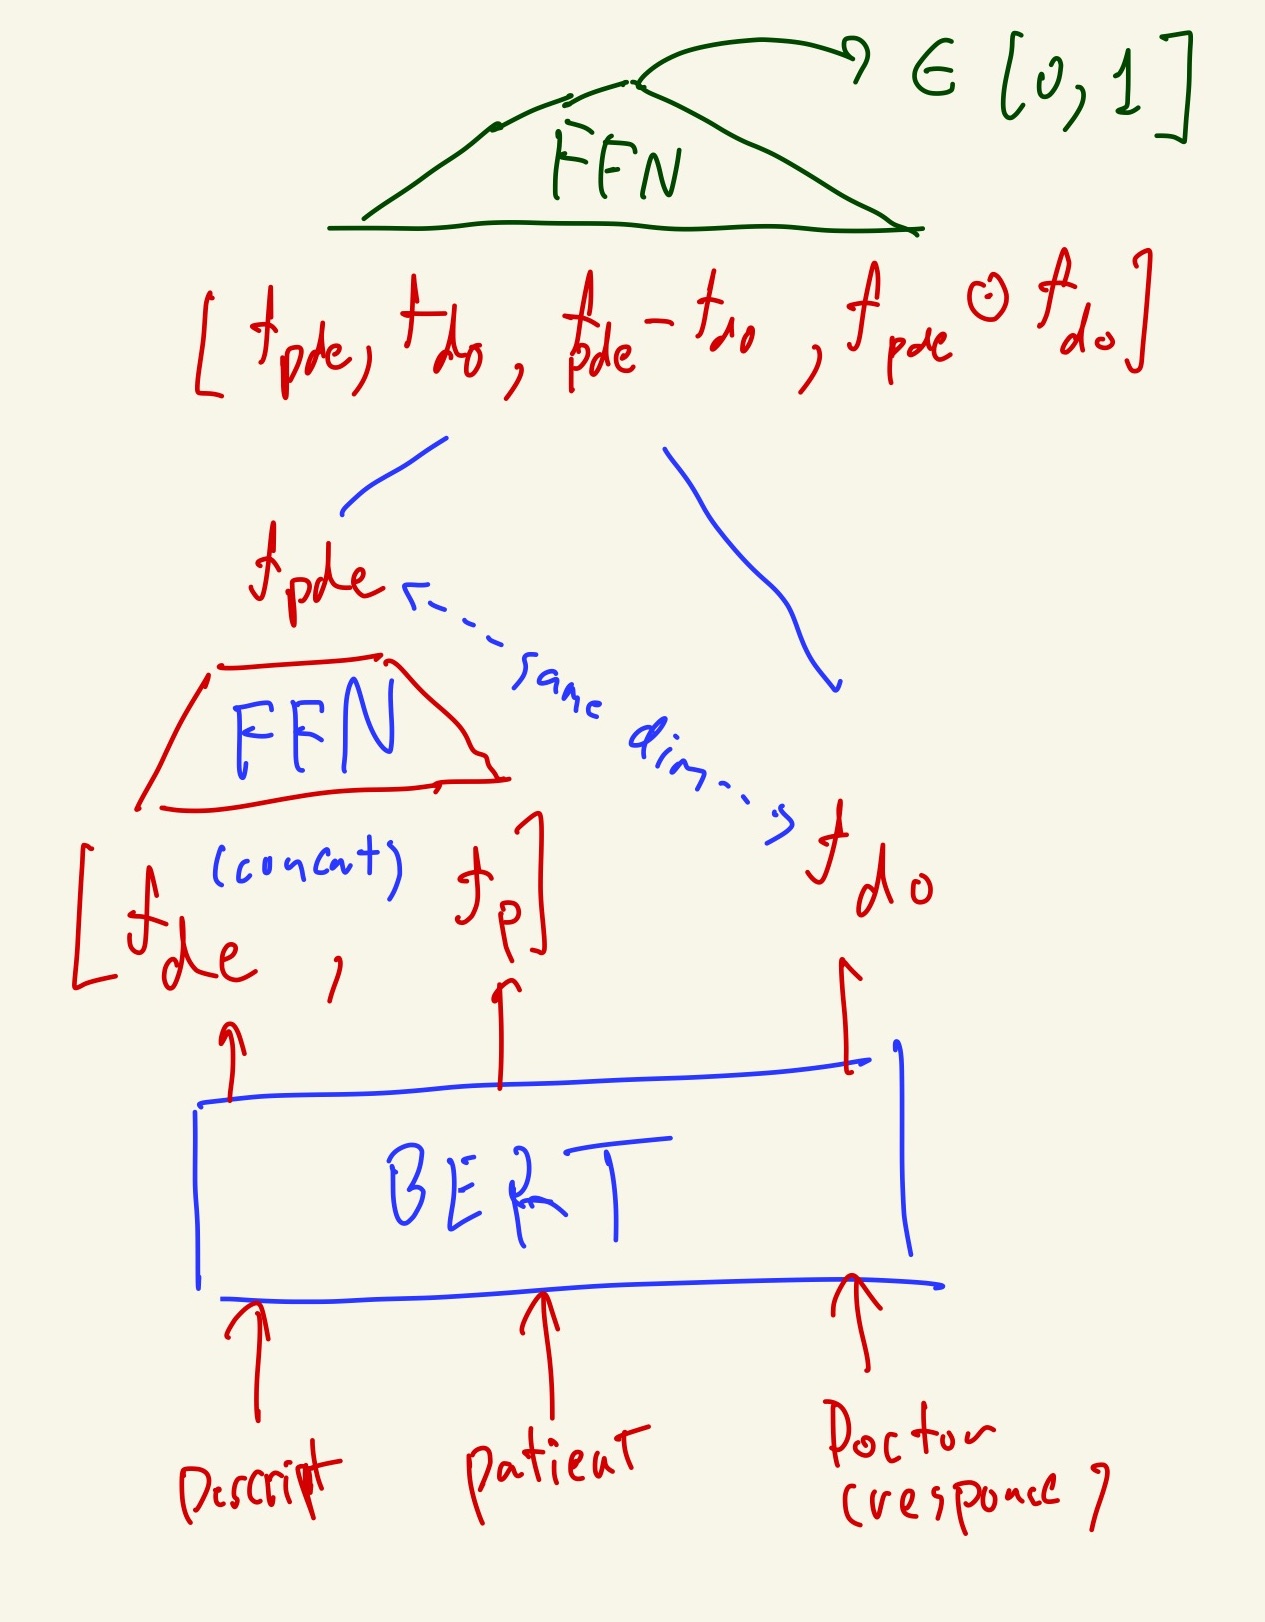 ∈ [0, 1]
FFN
[f_pde, f_do, f_pde - f_do, f_pde ⊙ f_do]
f_pde
same dim
FFN
(concat)
[f_de, f_p]
f_do
BERT
Descript
patient
Doctor
(response)